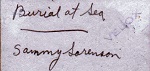 Burial at Sea
Sammy Sorenson
VELOX